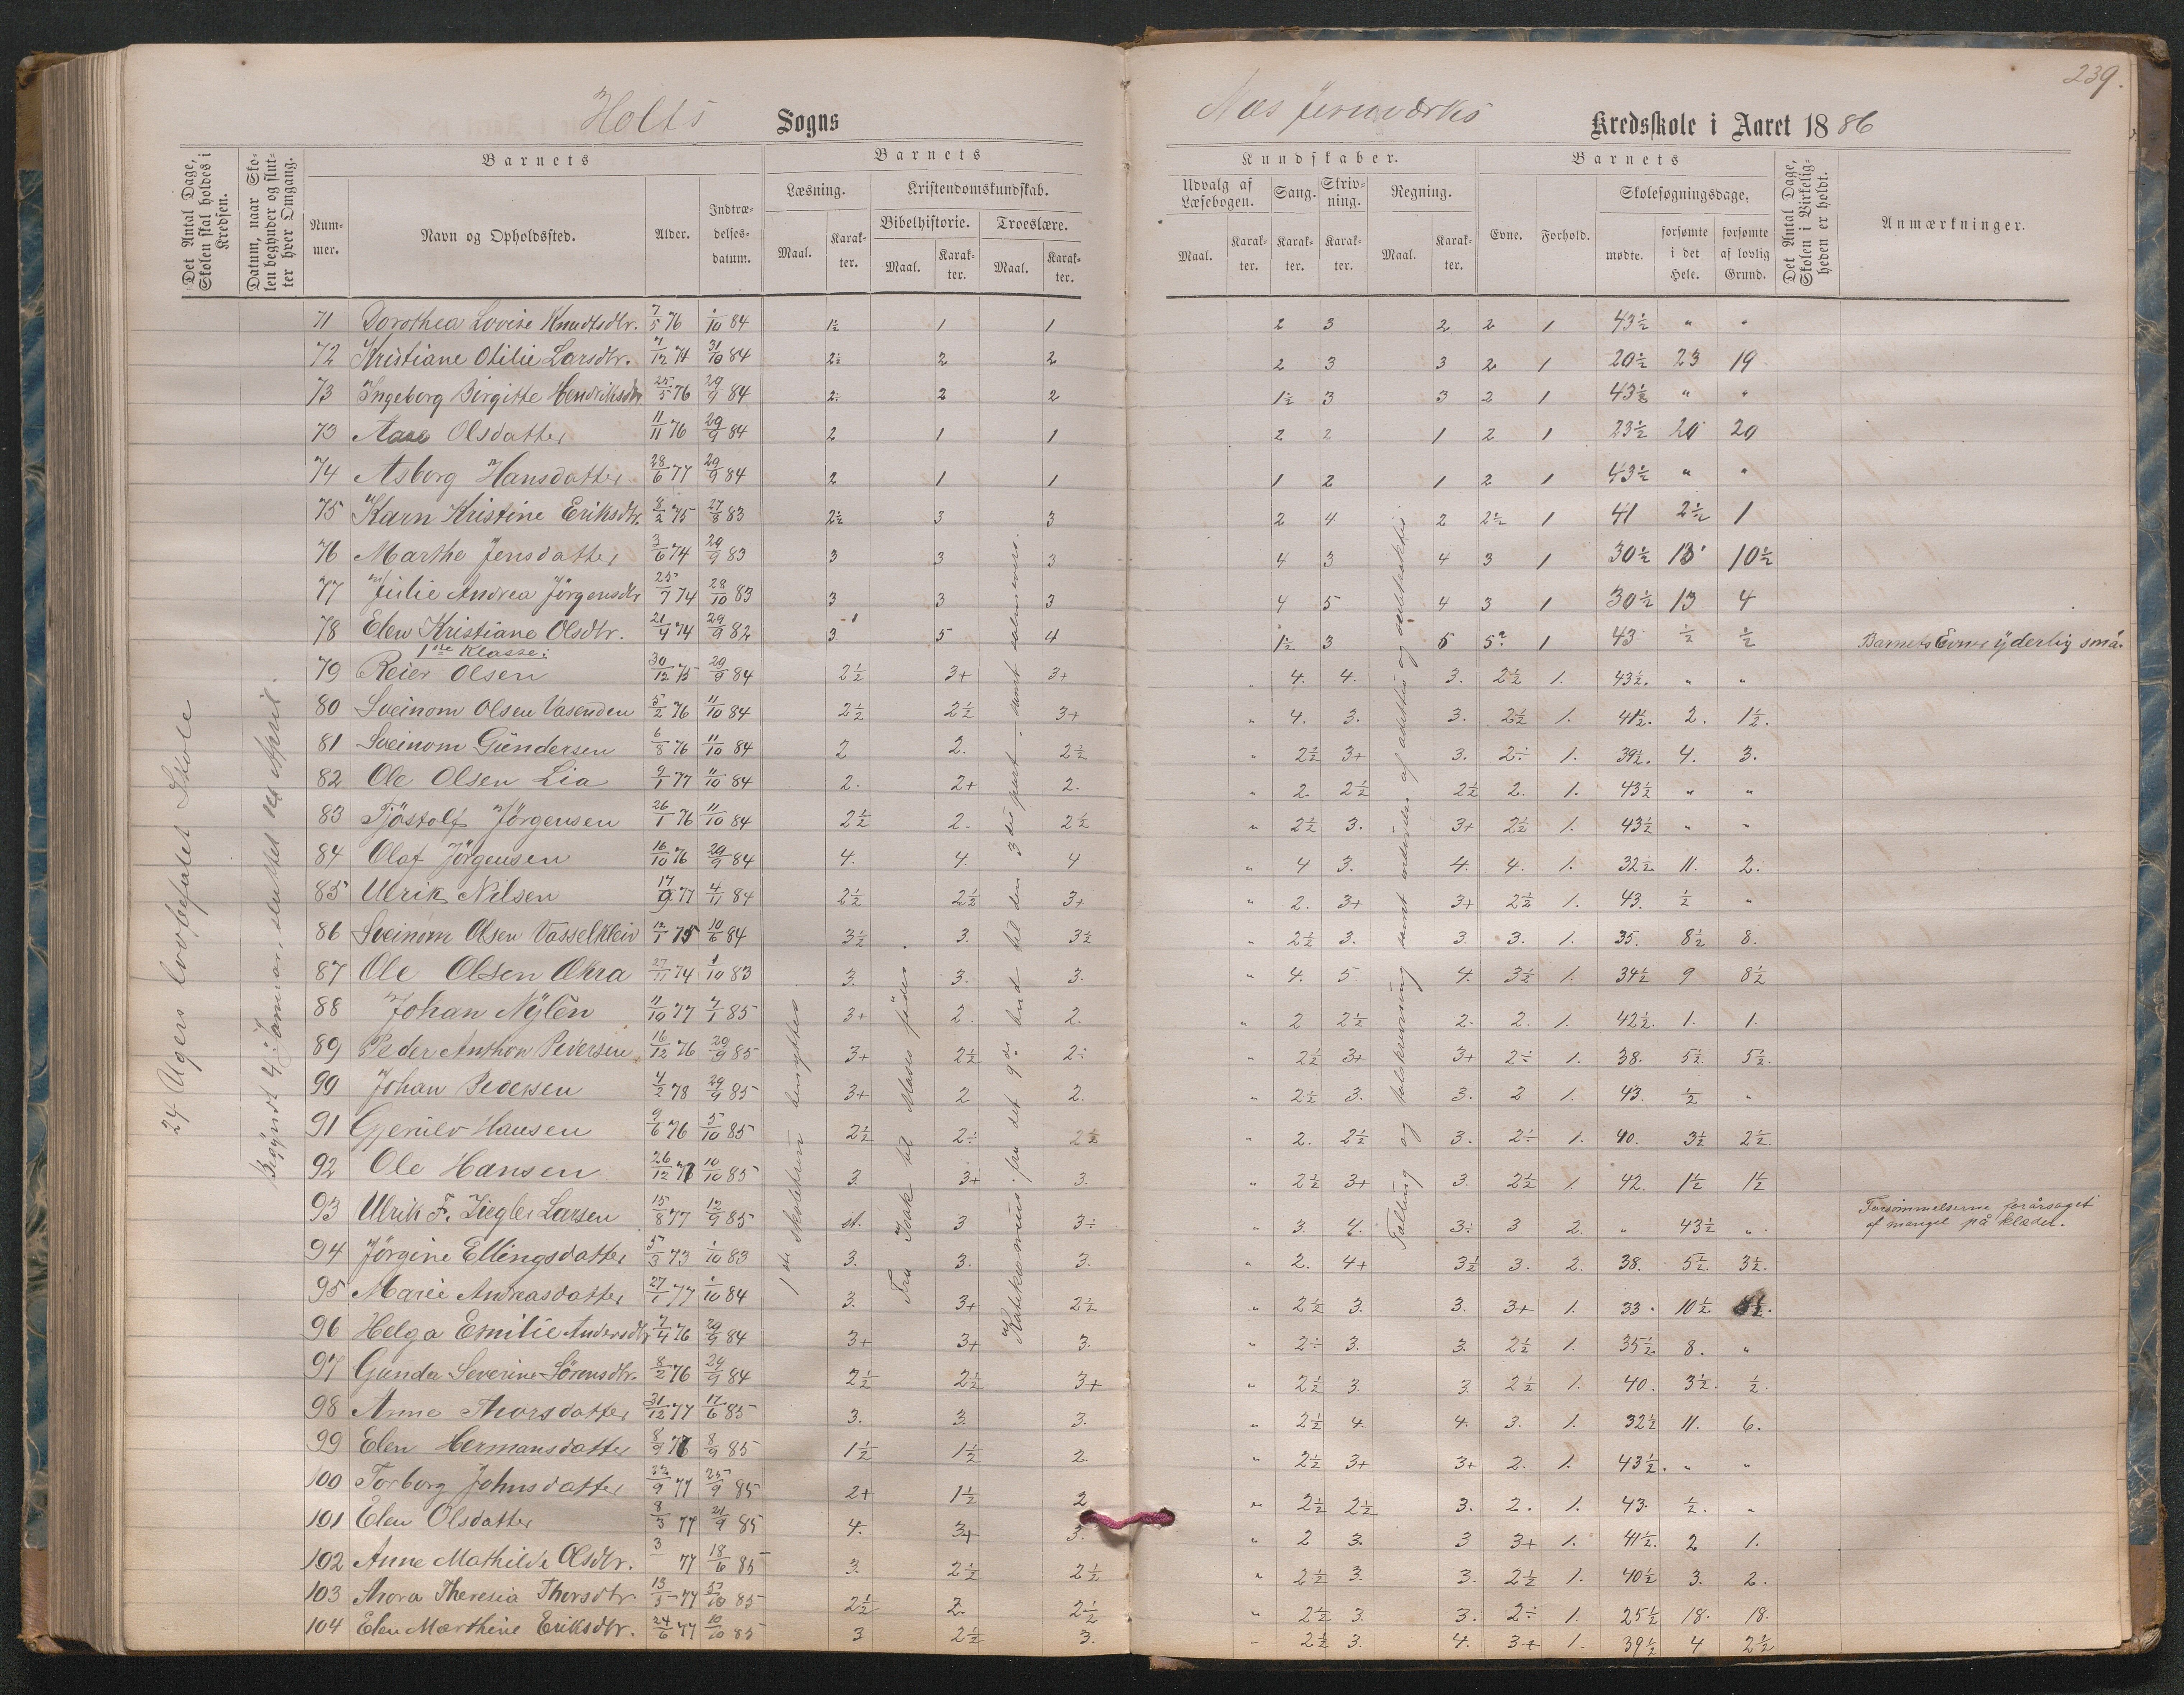 239.
Holts Sogns
Næs Jernværks Kredsskole i Aaret 1886
Det Antal Dage, Skolen skal holdes i Kredsen.
Datum, naar Skolen begynder og slutter hver Omgang.
Barnets
Nummer.
Navn og Opholdssted.
Alder.
Indtrædelsesdatum.
Barnets
Læsning.
Maal.
Karakter.
Kristendomskundskab.
Bibelhistorie.
Maal.
Karakter.
Troeslære.
Maal.
Karakter.
Kundskaber.
Udvalg af Læsebogen.
Maal.
Karakter.
Sang.
Karakter.
Skrivning.
Karakter.
Regning.
Maal.
Karakter.
Barnets
Evne.
Forhold.
Skolesøgningsdage.
mødte.
forsømte i det Hele.
forsømte af lovlig Grund.
Det Antal Dage, Skolen i Virkeligheden er holdt.
Anmærkninger.
24 Ugers lovbefalet Skole
71 Dorothea Lovise Knudtsdtr. 7/5 76 1/10 84 1½ 1 1 2 3 2 2 1 43½ " "
72 Kristiane Otilie Larsdtr. 7/12 74 31/10 84 2½ 2 2 2 3 3 2 1 20½ 23 19
73 Ingeborg Birgitte Hendriksdtr 25/5 76 29/9 84 2÷ 2 2 1½ 3 3 2 1 43½ " "
73 Aase Olsdatter 11/11 76 29/9 84 2 1 1 2 2 1 2 1 23½ 20 20
74 Asborg Hansdatter 28/6 77 29/9 84 2 1 1 1 2 1 2 1 43½ " "
75 Karn Kristine Eriksdtr. 8/2 75 27/8 83 2½ 3 3 2 4 2 2½ 1 41 2½ 1
76 Marthe Jensdatter 3/6 74 29/9 83 3 3 3 4 3 4 3 1 30½ 13 10½
77 Julie Andrea Jörgensdtr 25/7 74 28/10 83 3 3 3 4 5 4 3 1 30½ 13 4
78 Elen Kristiane Olsdtr. 21/4 74 29/9 82 3 5 4 1½ 3 5 5? 1 43 ½ ½ Barnets Evner yderlig små.
1ste Klasse:
79 Reier Olsen 30/12 75 29/9 84 2½ 3+ 3+ 4. 4. 3. 2½ 1. 43½. " "
80 Sveinom Olsen Vasenden 5/2 76 11/10 84 2½ 2½ 3+ " 4. 3. 3. 2½ 1. 41½. 2. 1½.
81 Sveinom Gundersen 6/8 76 11/10 84 2 2. 2½ " 2½ 3+ 3. 2÷ 1. 39½. 4. 3.
82 Ole Olsen Lia 9/1 77 11/10 84 2. 2+ 2. " 2. 2½ 2½ 2. 1. 43½ " "
83 Tjöstolf Jörgensen 26/1 76 11/10 84 2½ 2. 2½ " 2½ 3. 3+ 2½ 1. 43½ " "
84 Olaf Jörgensen 16/10 76 29/9 84 4. 4. 4 " 4 3. 4. 4. 1. 32½ 11. 2.
85 Ulrik Nilsen 17/9 77 4/11 84 2½ 2½ 3+ " 2. 3+ 3+ 2½ 1. 43. ½ "
86 Sveinom Olsen Vasselkleiv 12/1 75 10/6 84 3½ 3. 3½ " 2½ 3. 3. 3. 1. 35. 8½ 8.
87 Ole Olsen 27/11 74 1/10 83 3. 3. 3. " 4. 5 4. 3½ 1. 34½ 9 8½
88 Johan Nylén 11/10 77 7/1 85 3+ 2. 2. " 2 2½ 2. 2. 1. 42½. 1. 1.
89 Peder Anthon Pedersen 16/12 76 29/9 85 3+ 2½ 2÷ " 2½ 3+ 3+ 2÷ 1. 38. 5½. 5½.
90 Johan Pedersen 4/2 78 29/9 85 3+ 2 2. " 2½ 3. 3. 2 1. 43. ½ "
91 Gjeruld Hansen 9/6 76 5/10 85 2½ 2÷ 2½ " 2. 2½ 3. 2÷ 1. 40. 3½ 2½.
92 Ole Hansen 26/12 10/10 85 3. 3+ 3. " 2½ 3+ 3. 2½ 1. 42. 1½ 1½
93 Ulrik F. Ziegler Larsen 15/8 77 12/9 85 st. 3 3÷ " 3. 4. 3÷ 3 2. " 43½ " Forsömmelserne forårsaget af mangel på klæder.
94 Jörgine Ellingsdatter 5/3 73 1/10 83 3. 3. 3. " 2. 4+ 3½ 3. 2. 38. 5½. 3½.
95 Marie Andreasdatter 27/1 77 1/10 84 3. 3+ 2½ " 2½ 3. 3. 3+ 1. 33. 10½
96 Helga Emilie Andersdtr 7/4 76 29/9 84 3+ 3+ 3. " 2÷ 3. 3. 2½ 1. 35½ 8. "
97 Gunda Severine Sörensdtr. 8/2 76 29/9 84 2½ 2½ 3+ " 2½ 3. 3. 2½ 1. 40. 3½. ½.
98 Anne Thorsdatter 31/12 77 17/6 85 3. 3. 3. " 2½ 4. 4. 3. 1. 32½ 11. 6.
99 Elen Hermansdatter 8/9 76 8/9 85 1½ 1½ 2. " 2½ 3+ 3+ 2. 1. 43½. " "
100 Torborg Johnsdatter 22/9 77 25/9 85 2+ 1½ 2 " 2½ 2½ 3. 2. 1. 43. ½. "
101 Elen Olsdatter 8/3 77 21/9 85 4. 3+ 3. " 2 3. 3 3+ 1. 41½. 2 1.
102 Anne Mathilde Olsdtr. 3/ 77 18/6 85 3. 2½ 2½ " 2½ 3. 3. 2½ 1. 40½ 3. 2.
103 Thora Theresia Thorsdtr 13/5 77 /10 85 2½ 2. 2½ " 2½ 3. 3. 2÷ 1. 25½ 18. 18.
104 Elen Marthine Eriksdtr. 24/6 77 10/10 85 3 2½ 3. " 2½ 3. 4. 3+ 1. 39½ 4 2½
1ste skoletrin benyttes.
Fra Isak til Mose föder.
Katekismus: fra det 9de bud til den 3die part - samt salmevers.